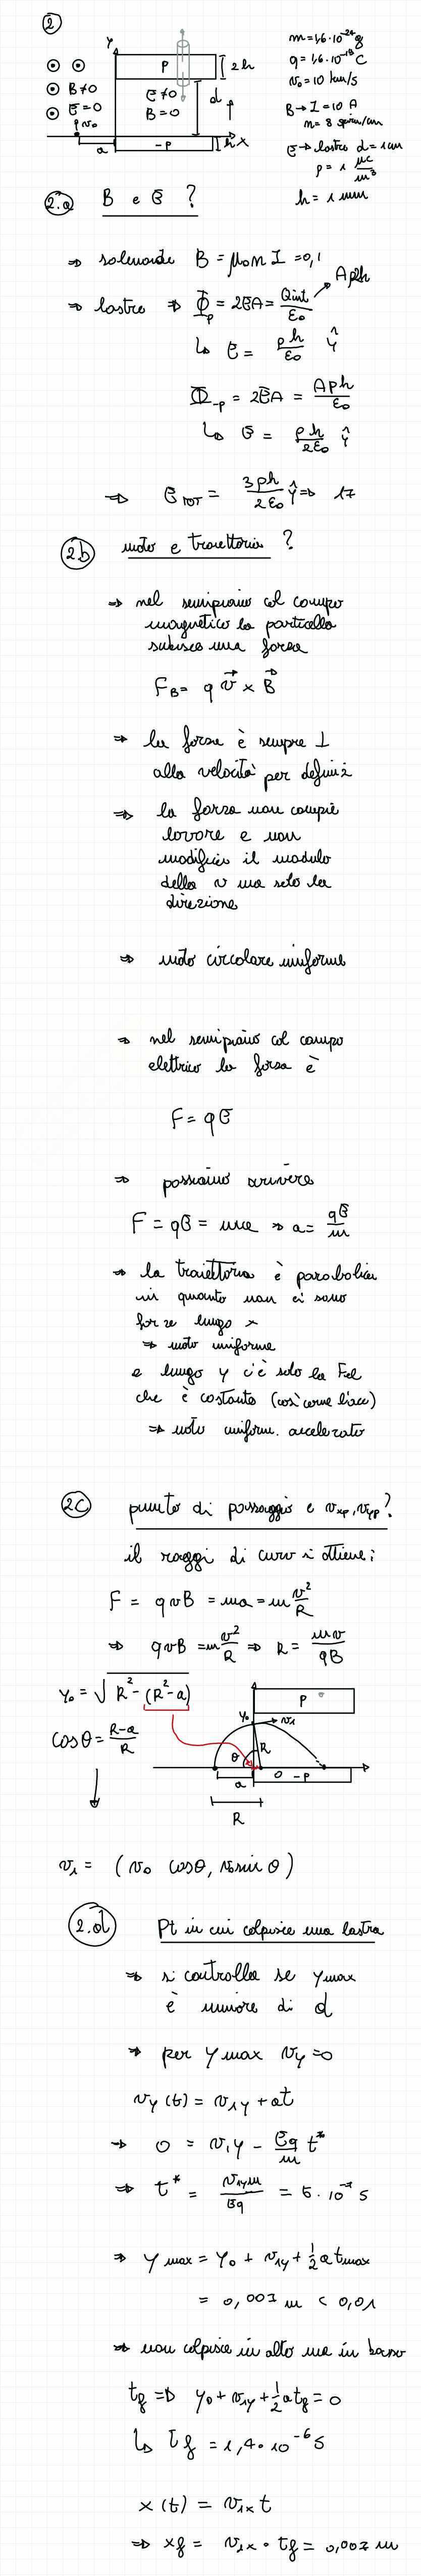 ②
y
P
2h
B≠0
E=0
E≠0
B=0
d
q v₀
a
-P
h x
m=1,6·10⁻²⁴ g
q=1,6·10⁻¹⁹ C
v₀=10 km/s
B→ I=10 A
n= 8 spire/cm
E→ lastre d=1cm
ρ= 1 μC/m³
h=1mm
2.a B e E ?
⇒ solenoide B = μ₀ n I =0,1
⇒ lastre ⇒ Φ_ρ = 2EA = Qint/ε₀ → Aρ2h
↳ E = ρh/ε₀ ŷ
Φ_-ρ = 2EA = Aρh/ε₀
↳ E = ρh/2ε₀ ŷ
⇒ E TOT = 3ρh/2ε₀ ŷ ⇒ 17
2b moto e traiettoria ?
⇒ nel semipiano col campo
magnetico la particella
subisce una forza
F_B = q v⃗ x B⃗
⇒ la forza è sempre ⊥
alla velocità per definiz
⇒ la forza non compie
lavoro e non
modifica il modulo
della v ma solo la
direzione
⇒ moto circolare uniforme
⇒ nel semipiano col campo
elettrico la forza è
F = qE
⇒ possiamo scrivere
F = qE = ma ⇒ a = qE/m
⇒ la traiettoria è parabolica
in quanto non ci sono
forze lungo x
⇒ moto uniforme
e lungo y c'è solo la Fel
che è costante (così come l'acc)
⇒ moto uniform. accelerato
2c punto di passaggio e vxp, vyp?
il raggi di curv si ottiene:
F = qvB = ma = m v²/R
⇒ qvB = m v²/R ⇒ R = mv/qB
y₀ = √R²-(R²-a)
cosθ = R-a/R
P
y₀
v₁
θ
R
a
O -P
R
v₁ = (v₀ cosθ, v₀sin θ)
2.d Pt in cui colpisce una lastra
⇒ si controlla se ymax
è minore di d
⇒ per y max vy=0
vy(t) = v1y + at
⇒ 0 = v1y - Eq/m t*
⇒ t* = v1y m/Eq = 5·10⁻⁷ s
⇒ y max = y₀ + v1y + ½ a tmax
= 0,007 m < 0,01
⇒ non colpisce in alto ma in basso
tf ⇒ y₀ + v1y + ½ a tf = 0
↳ tf = 1,4·10⁻⁶ s
x(t) = v1x t
⇒ xf = v1x · tf = 0,007 m